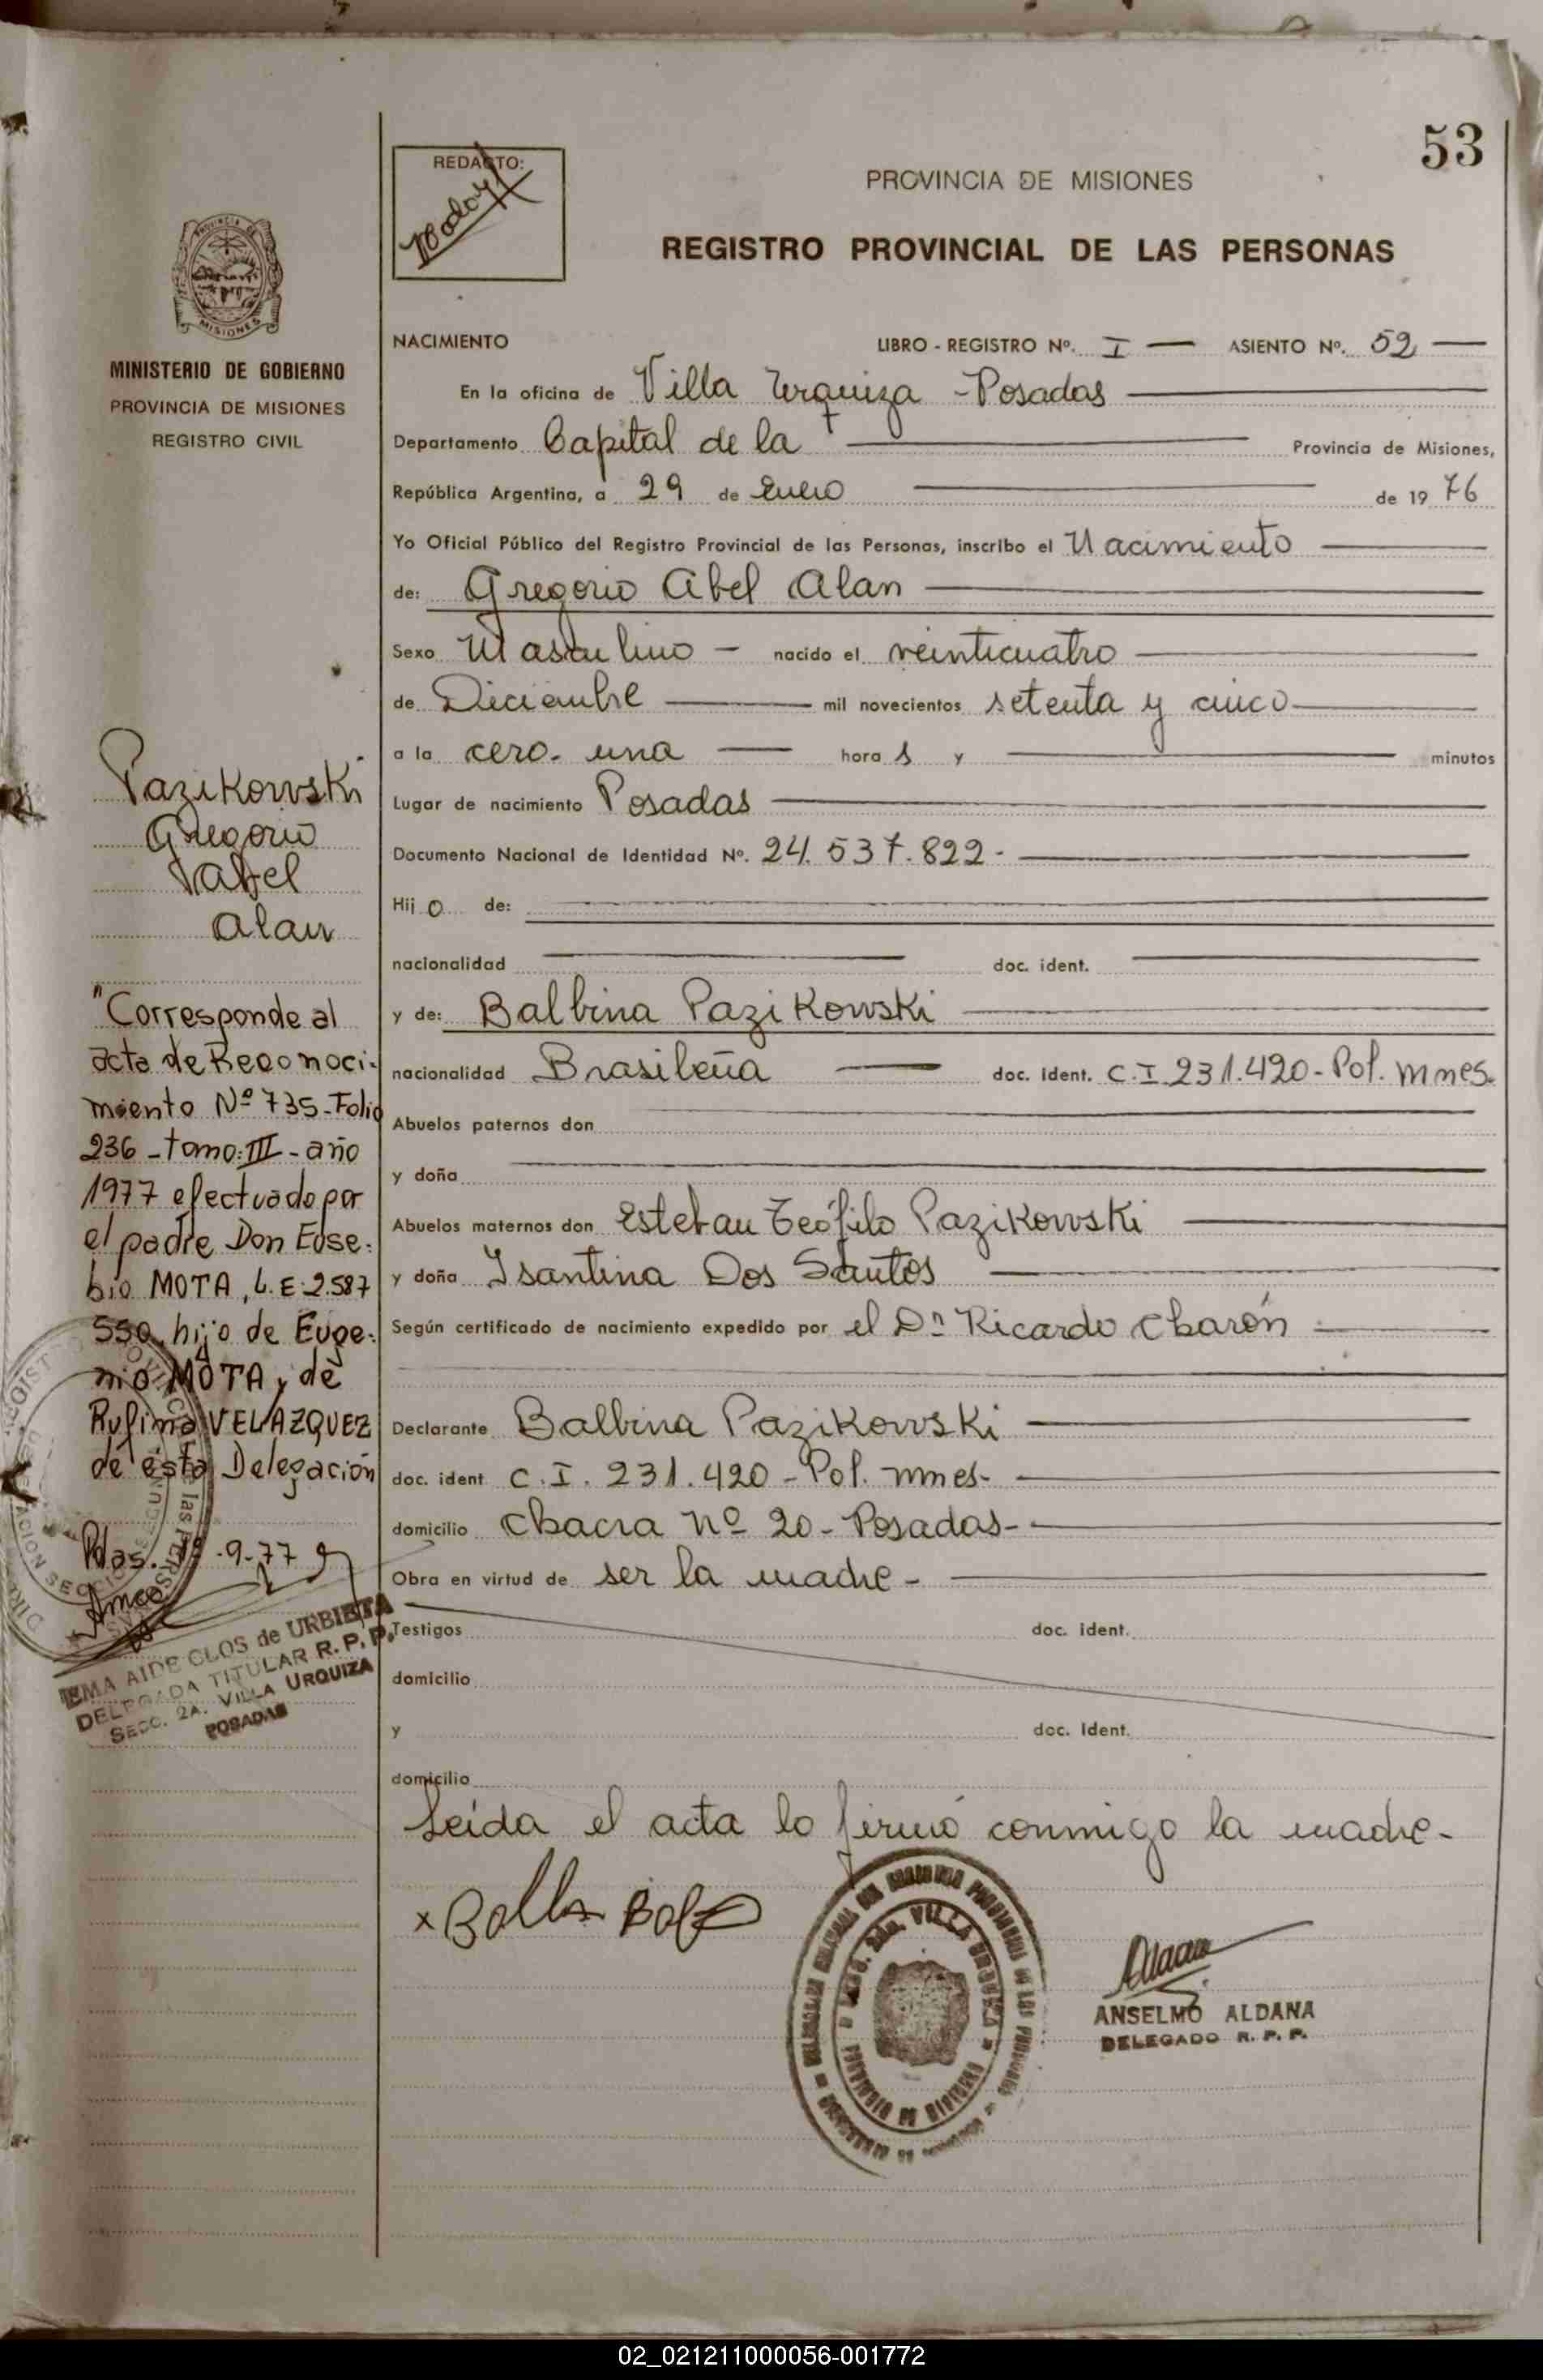 53
REDACTO:
PROVINCIA DE MISIONES
REGISTRO PROVINCIAL DE LAS PERSONAS
MISIONES
MINISTERIO DE GOBIERNO
PROVINCIA DE MISIONES
REGISTRO CIVIL
NACIMIENTO LIBRO - REGISTRO Nº. I — ASIENTO Nº. 52 —
En la oficina de Villa Urquiza - Posadas
Departamento Capital de la Provincia de Misiones,
República Argentina, a 29 de Enero de 1976
Yo Oficial Público del Registro Provincial de las Personas, inscribo el Nacimiento
de: Gregorio Abel Alan
Sexo Masculino - nacido el veinticuatro
de Diciembre mil novecientos setenta y cinco
a la cero - una hora s y minutos
Lugar de nacimiento Posadas
Documento Nacional de Identidad Nº. 24.537.822-
Hij o de:
nacionalidad doc. ident.
y de: Balbina Pazikowski
nacionalidad Brasileña doc. ident. C.I. 231.420 - Pol. Mnes.
Abuelos paternos don
y doña
Abuelos maternos don Esteban Teófilo Pazikowski
y doña Isantina Dos Santos
Según certificado de nacimiento expedido por el Dr Ricardo Charón
Declarante Balbina Pazikowski
doc. ident C.I. 231.420 - Pol. Mnes-
domicilio Chacra Nº 20 - Posadas-
Obra en virtud de ser la madre -
Testigos doc. ident.
domicilio
y doc. Ident.
domicilio
Leída el acta lo firmó conmigo la madre-
Pazikowski
Gregorio
Abel
Alan
"Corresponde al
acta de Reconoci-
miento Nº 735-Folio
236 - tomo: III - año
1977 efectuado por
el padre Don Euse-
bio MOTA, L.E. 2.587
550, hijo de Euge-
nio MOTA y de
Rufina VELAZQUEZ
de esta Delegación
Pdas. -9-77
EMA AIDE CLOS de URBIETA
DELEGADA TITULAR R. P. P.
SECC. 2A. VILLA URQUIZA
POSADAS
ANSELMO ALDANA
DELEGADO R. P. P.
02_021211000056-001772